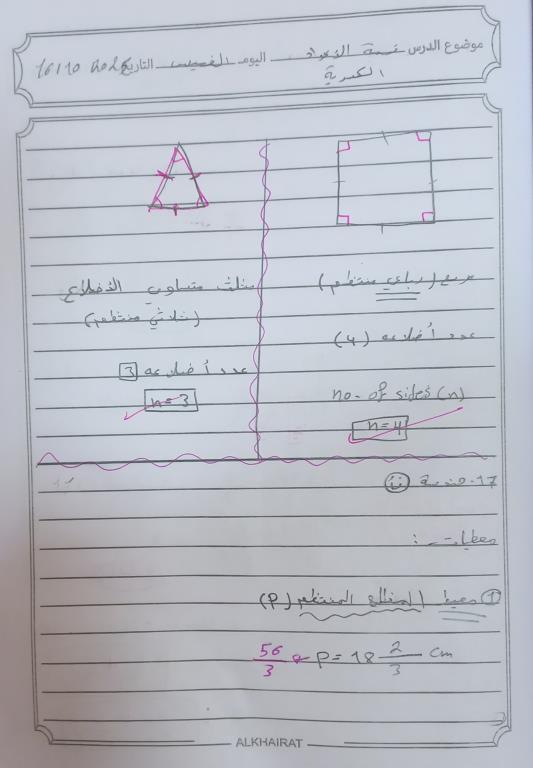 موضوع الدرس قسمة الأعداد اليوم الخميس التاريخ
الكسرية
مربع (رباعي منتظم)
عدد أضلاعه (4)
no. of sides (n)
n=4
مثلث متساوي الأضلاع
(ثلاثي منتظم)
عدد أضلاعه 3
n=3
17. هندسة
معطيات :
① محيط المضلع المنتظم (P)
P = 18 2/3 cm
56/3
ALKHAIRAT